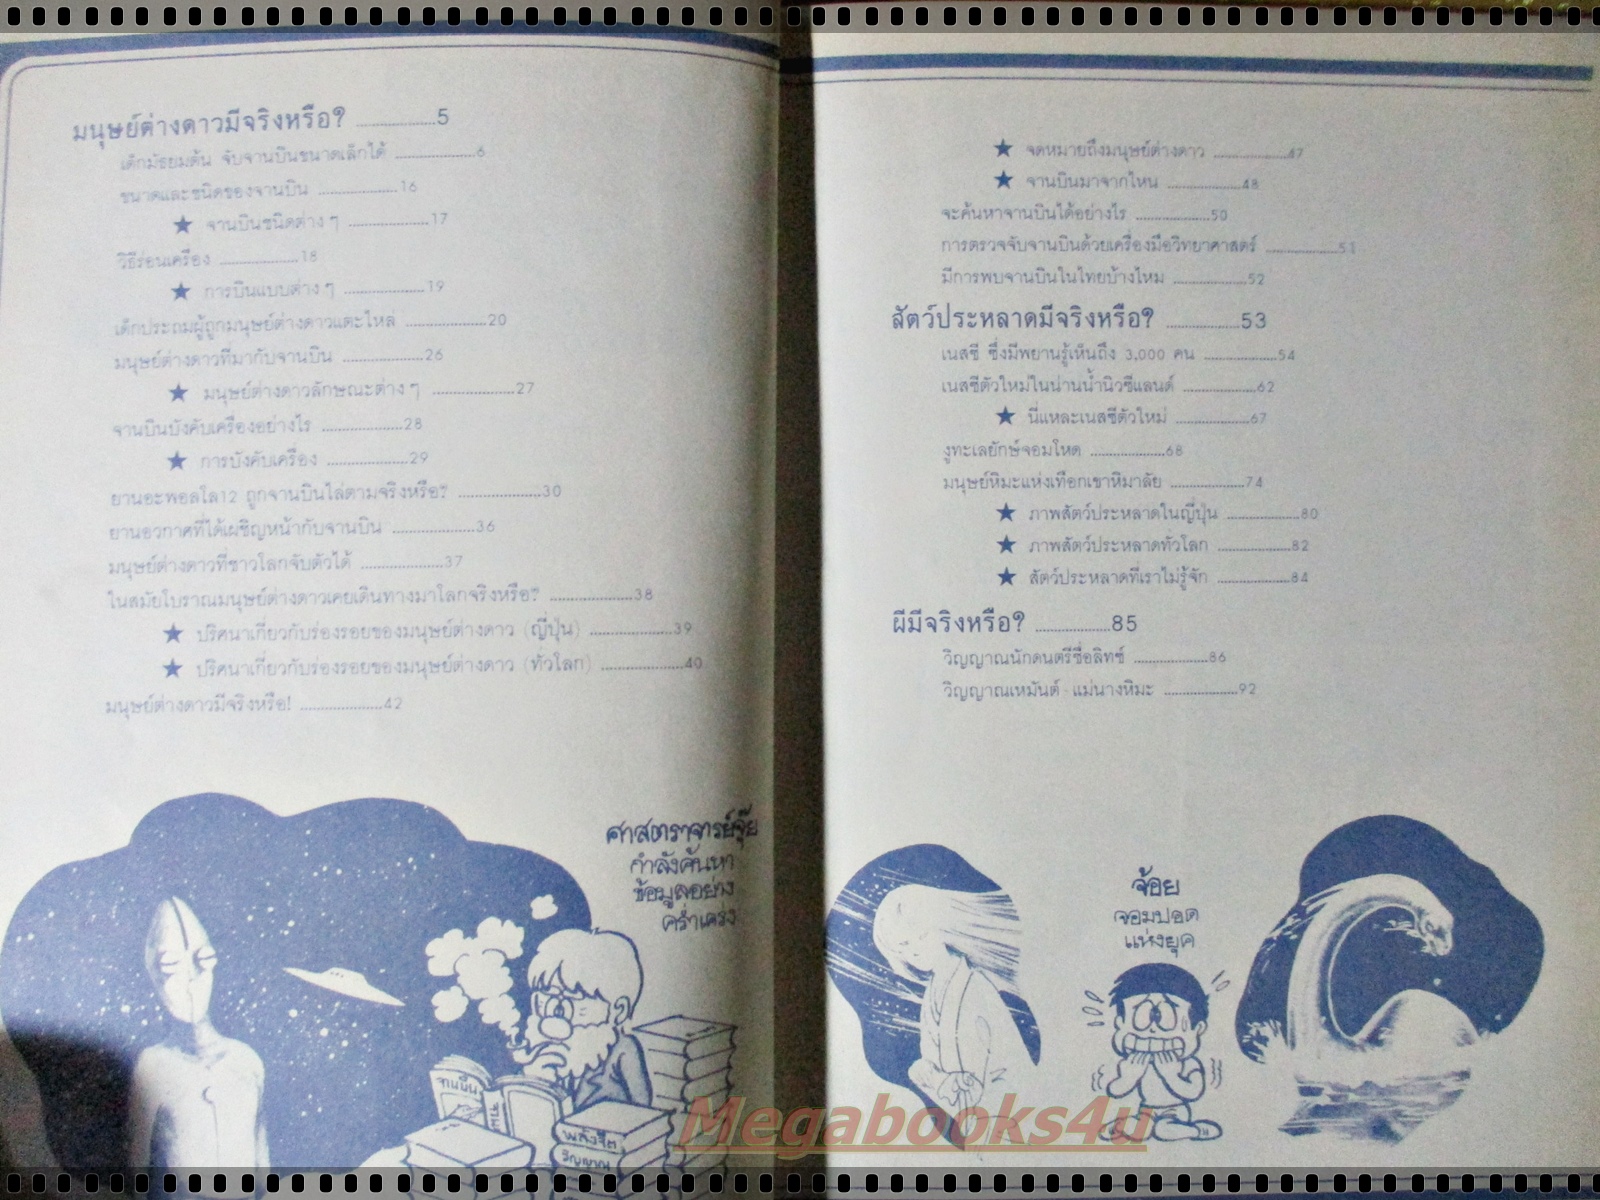 มนุษย์ต่างดาวมีจริงหรือ? ................5
เด็กมัธยมต้น จับจานบินขนาดเล็กได้ ................6
ขนาดและชนิดของจานบิน ................16
★ จานบินชนิดต่าง ๆ ................17
วิธีร่อนเครื่อง ................18
★ การบินแบบต่าง ๆ ................19
เด็กประถมผู้ถูกมนุษย์ต่างดาวแตะไหล่ ................20
มนุษย์ต่างดาวที่มากับจานบิน ................26
★ มนุษย์ต่างดาวลักษณะต่าง ๆ ................27
จานบินบังคับเครื่องอย่างไร ................28
★ การบังคับเครื่อง ................29
ยานอะพอลโล12 ถูกจานบินไล่ตามจริงหรือ? ................30
ยานอวกาศที่ได้เผชิญหน้ากับจานบิน ................36
มนุษย์ต่างดาวที่ชาวโลกจับตัวได้ ................37
ในสมัยโบราณมนุษย์ต่างดาวเคยเดินทางมาโลกจริงหรือ? ................38
★ ปริศนาเกี่ยวกับร่องรอยของมนุษย์ต่างดาว (ญี่ปุ่น) ................39
★ ปริศนาเกี่ยวกับร่องรอยของมนุษย์ต่างดาว (ทั่วโลก) ................40
มนุษย์ต่างดาวมีจริงหรือ! ................42
ศาสตราจารย์จุ๊ย
กำลังค้นหา
ข้อมูลอย่าง
คร่ำเคร่ง
จานบิน
พลังจิต
วิญญาณ
★ จดหมายถึงมนุษย์ต่างดาว ................47
★ จานบินมาจากไหน ................48
จะค้นหาจานบินได้อย่างไร ................50
การตรวจจับจานบินด้วยเครื่องมือวิทยาศาสตร์ ................51
มีการพบจานบินในไทยบ้างไหม ................52
สัตว์ประหลาดมีจริงหรือ? ................53
เนสซี ซึ่งมีพยานรู้เห็นถึง 3,000 คน ................54
เนสซีตัวใหม่ในน่านน้ำนิวซีแลนด์ ................62
★ นี่แหละเนสซีตัวใหม่ ................67
งูทะเลยักษ์จอมโหด ................68
มนุษย์หิมะแห่งเทือกเขาหิมาลัย ................74
★ ภาพสัตว์ประหลาดในญี่ปุ่น ................80
★ ภาพสัตว์ประหลาดทั่วโลก ................82
★ สัตว์ประหลาดที่เราไม่รู้จัก ................84
ผีมีจริงหรือ? ................85
วิญญาณนักดนตรีชื่อลิทซ์ ................86
วิญญาณเหมันต์ - แม่นางหิมะ ................92
จ้อย
จอมปอด
แห่งยุค
Megabooks4u